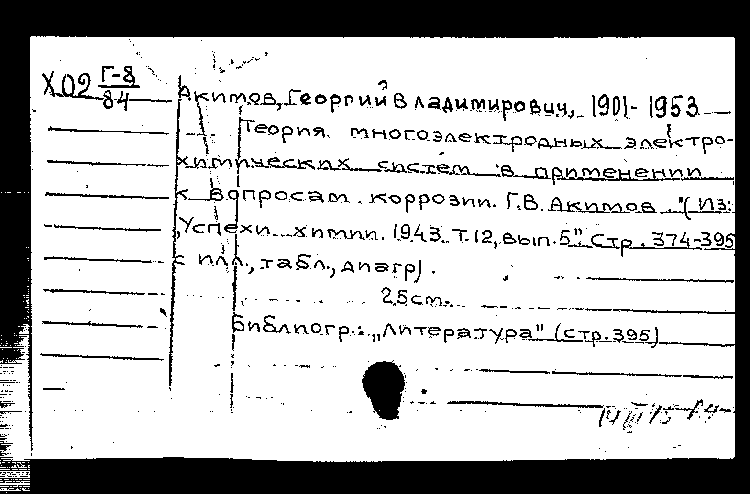 Х02 Г-8
84
Акимов, Георгий Владимирович, 1901-1953
Теория многоэлектродных электро-
химических систем в применении
к вопросам коррозии. Г.В. Акимов. "(Из:
„Успехи химии. 1943. Т.12, вып. 5" Стр. 374-395
с илл., табл., диагр).
25см.
Библиогр.: „Литература" (стр. 395)
14 III 45